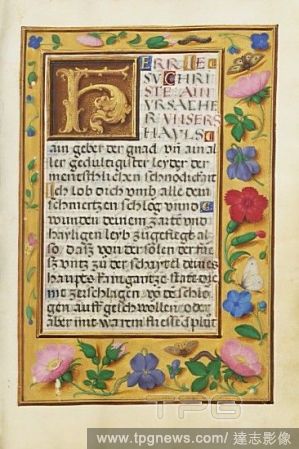 HERR IE
SU CHRI
STE AIN
VRSACHER
VNSERS
HAYLS
ain geber der gnad vn̄ ain al
ler gedultigister leyder der
mentschlichen schnödickait
Ich lob dich vmb alle dein
schmertzen schleg vnnd
wunden deinem zarte vnd
hayligen leyb zugefiegt al
so das von der solen der fies
vntz zu der schaytel deines
haupts kain gantze statt die
mit zerschlagen
auff geschwollen oder
aber mit warem fliessēdē plut
TPG
www.tpgnews.com/ 達志影像